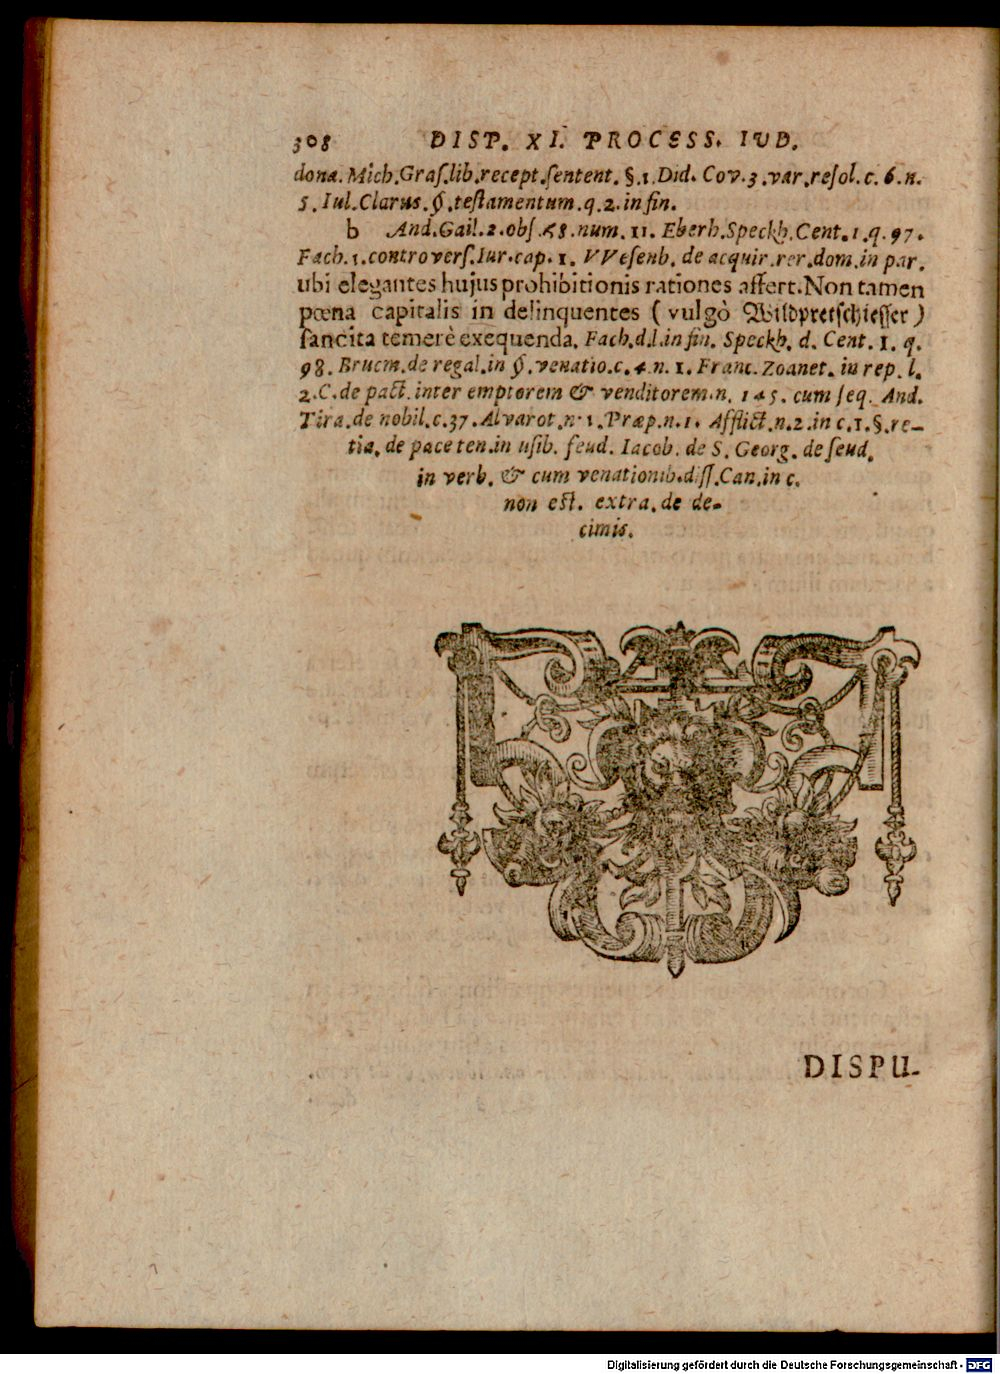 308 DISP. XI. PROCESS. IUD.
dona. Mich. Graſ. lib. recept. ſentent. §. 1. Did. Cov. 3. var. reſol. c. 6. n.
5. Iul. Clarus. §. teſtamentum. q. 2. in fin.
b And. Gail. 2. obſ. 68. num. 11. Eberh. Speckh. Cent. 1. q. 97.
Fach. 1. controverſ. Iur. cap. 1. VVeſenb. de acquir. rer. dom. in par.
ubi elegantes hujus prohibitionis rationes affert. Non tamen
pœna capitalis in delinquentes ( vulgò Wildpretſchieſſer )
ſancita temerè exequenda, Fach. d. l. in fin. Speckh. d. Cent. 1. q.
98. Brucm. de regal. in §. venatio. c. 4. n. 1. Franc. Zoanet. in rep. l.
2. C. de pact. inter emptorem & venditorem. n. 145. cum ſeq. And.
Tira. de nobil. c. 37. Alvarot. n. 1. Præp. n. 1. Afflict. n. 2. in c. 1. §. re-
tia, de pace ten. in uſib. feud. Iacob. de S. Georg. de feud.
in verb. & cum venationib. diſſ. Can. in c.
non eſt. extra. de de-
cimis.
DISPU-
Digitalisierung gefördert durch die Deutsche Forschungsgemeinschaft - DFG